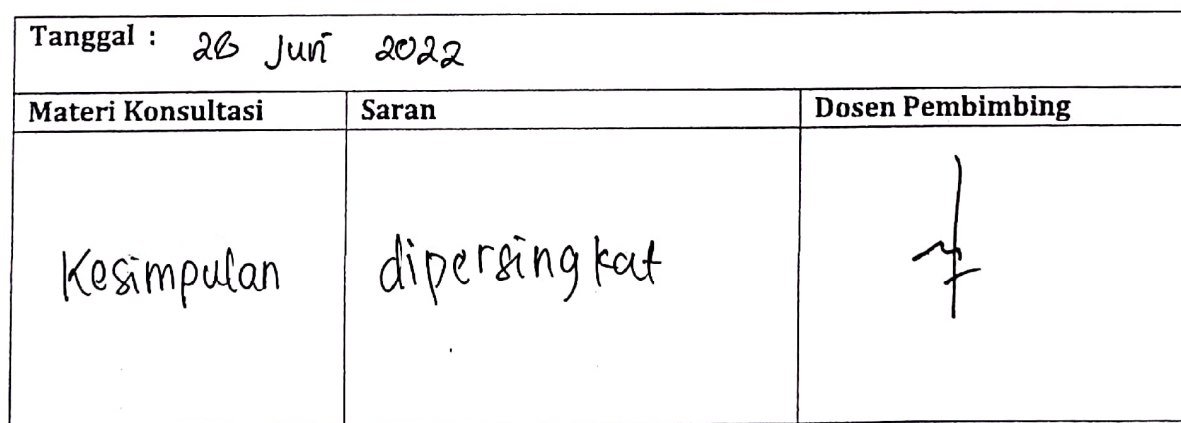 Tanggal : 28 Juni 2022
Materi Konsultasi Saran Dosen Pembimbing
Kesimpulan dipersingkat